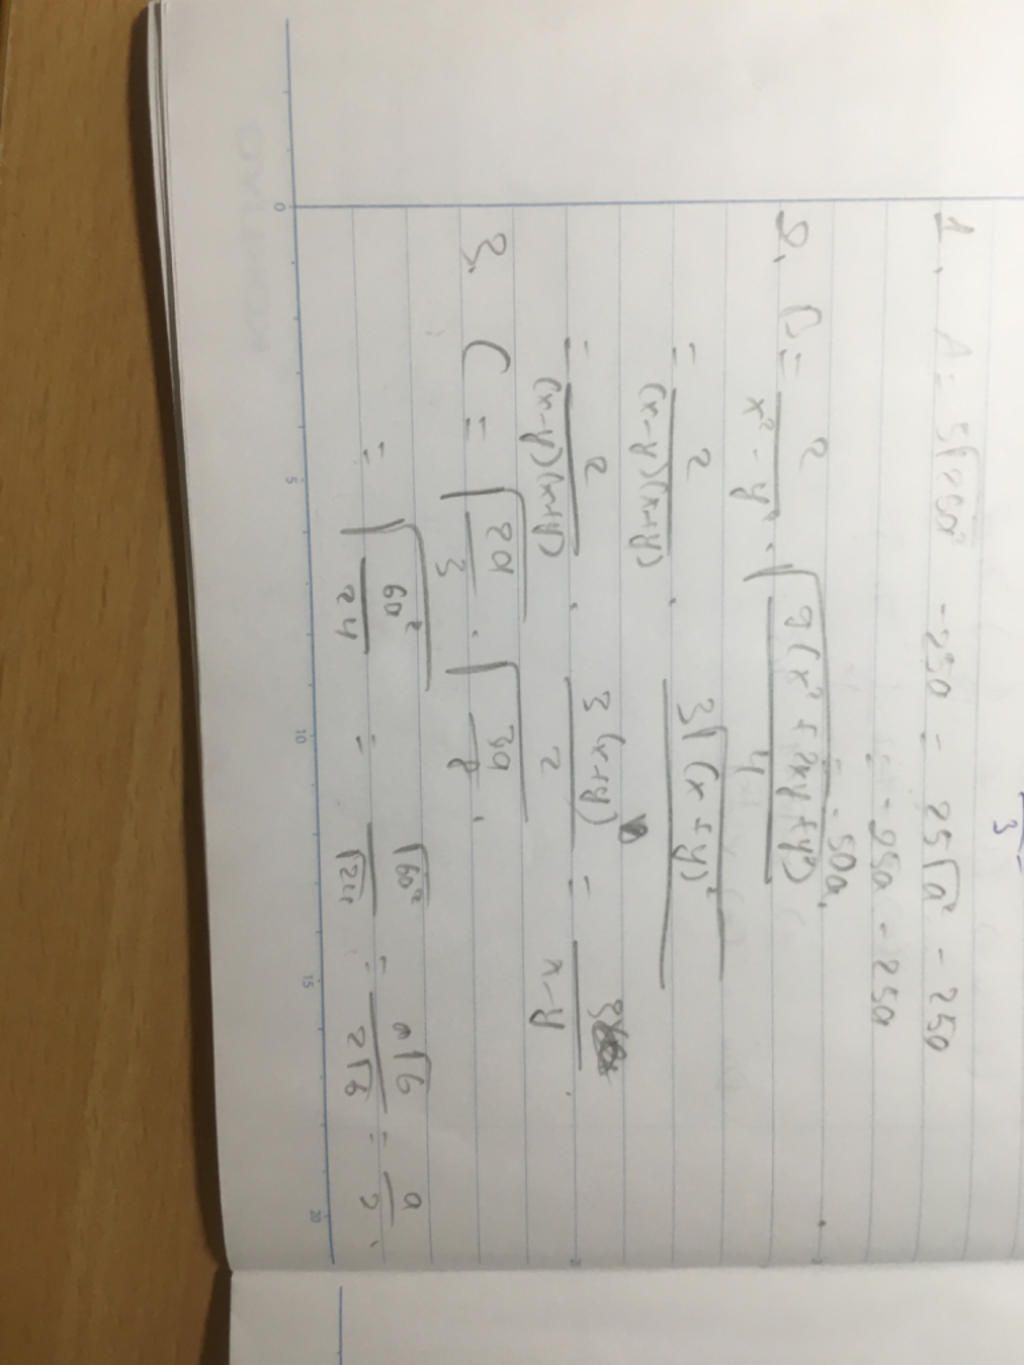 1. A = 5√25a² - 25a = 25√a² - 25a
= - 25a - 25a
= - 50a.
2. B = 2/(x² - y²) · √(9(x² + 2xy + y²)/4)
= 2/((x-y)(x+y)) · 3√(x+y)²
= 2/((x-y)(x+y)) · 3(x+y)/2 = 3/(x-y) .
3. C = √(2a/3) · √(3a/8) .
= √(6a²/24) = √6a²/√24 = a√6/2√6 = a/2 .
0 5 10 15 20